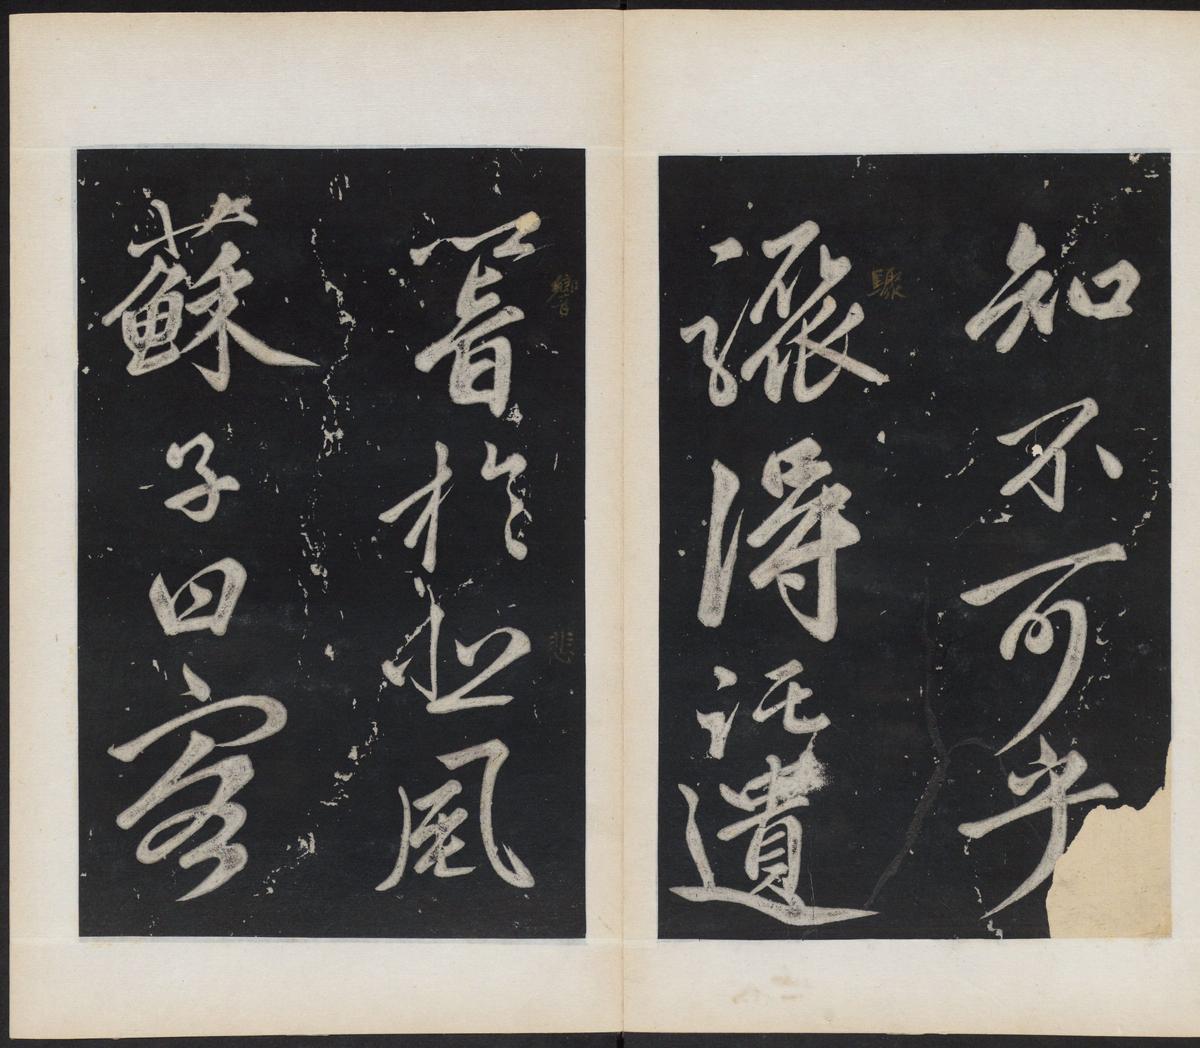 知不可乎
驟
驟得託遺
響
響於悲風
悲
蘇子曰客